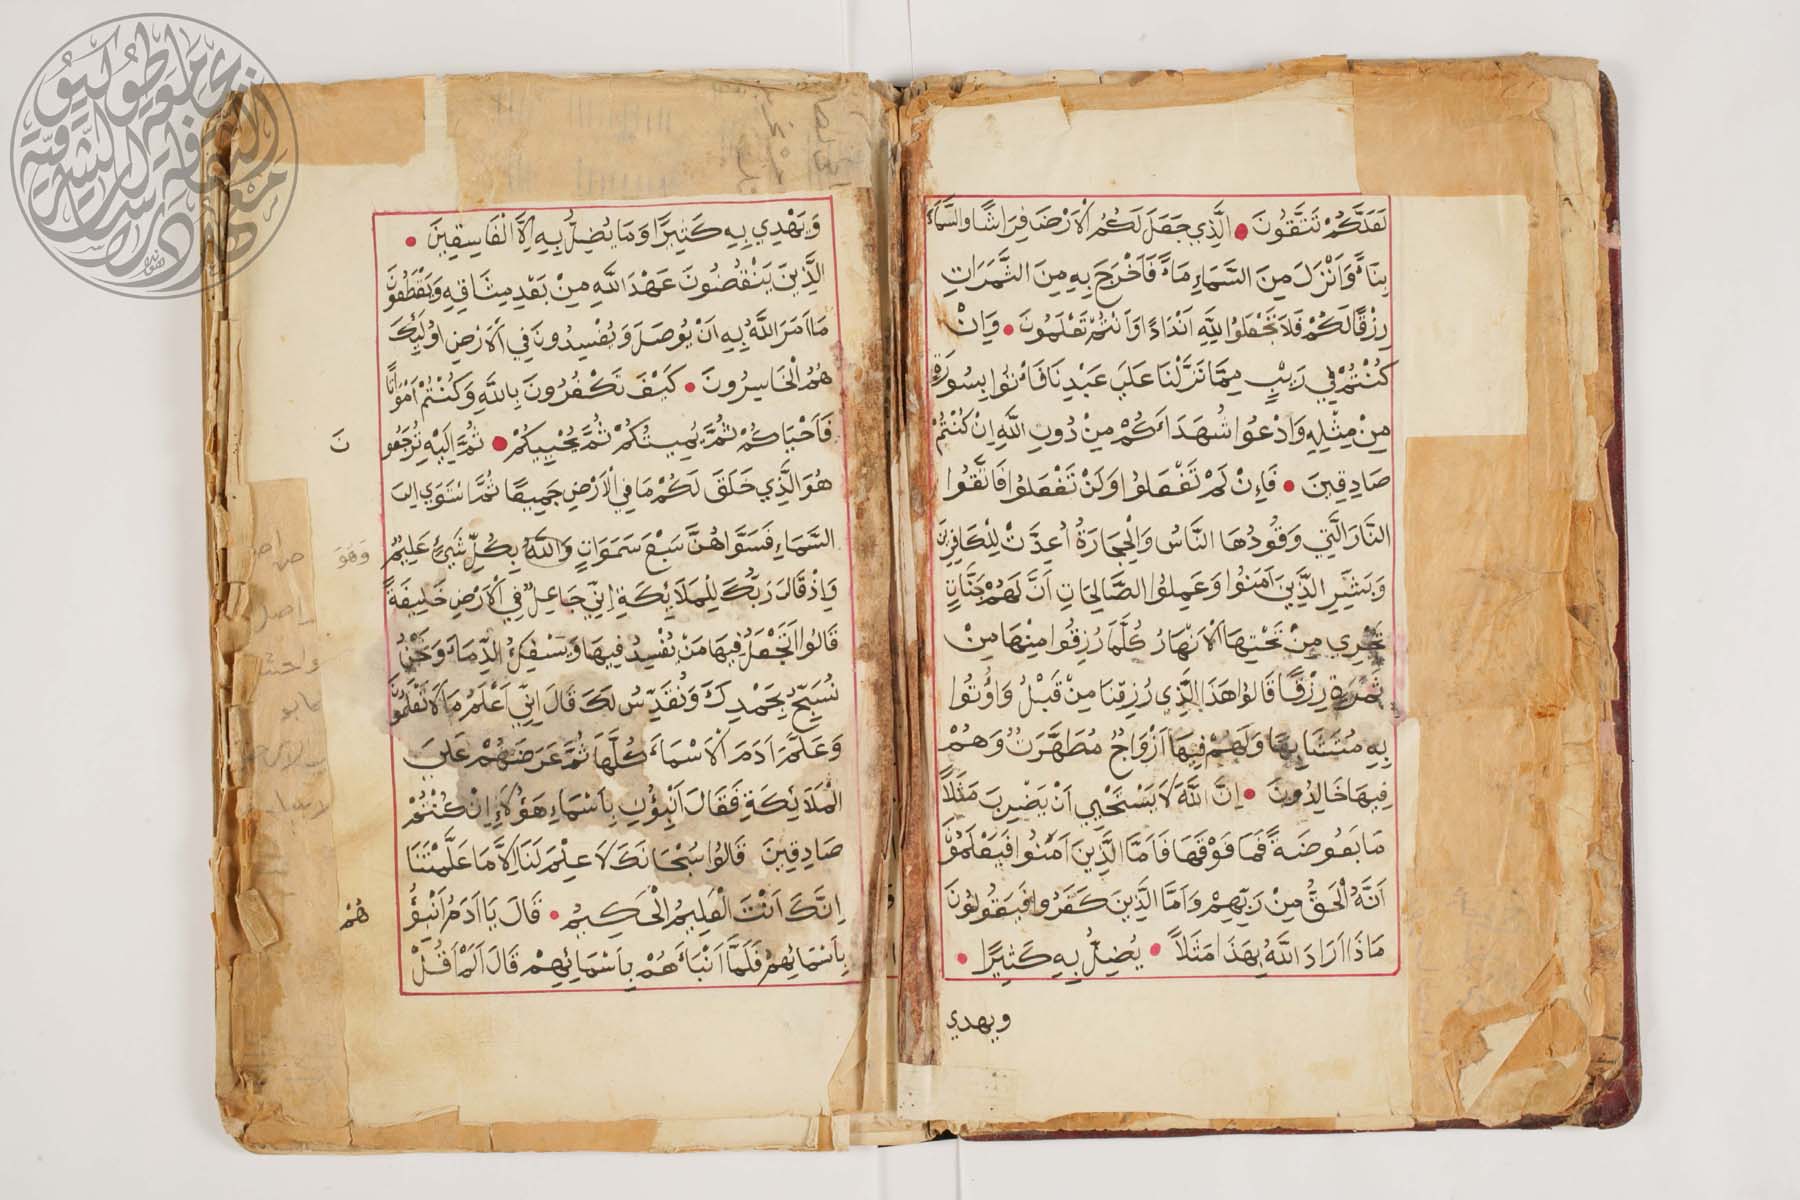 لَعَلَّكُمْ تَتَّقُونَ • الَّذِي جَعَلَ لَكُمُ الْاَرْضَ فِرَاشًا وَالسَّمَاءَ
بِنَاءً وَاَنْزَلَ مِنَ السَّمَاءِ مَاءً فَاَخْرَجَ بِهِ مِنَ الثَّمَرَاتِ
رِزْقًا لَكُمْ فَلَا تَجْعَلُوا لِلّٰهِ اَنْدَادًا وَاَنْتُمْ تَعْلَمُونَ • وَاِنْ
كُنْتُمْ فِي رَيْبٍ مِمَّا نَزَّلْنَا عَلَى عَبْدِنَا فَاْتُوا بِسُورَةٍ
مِنْ مِثْلِهِ وَادْعُوا شُهَدَاءَكُمْ مِنْ دُونِ اللّٰهِ اِنْ كُنْتُمْ
صَادِقِينَ • فَاِنْ لَمْ تَفْعَلُوا وَلَنْ تَفْعَلُوا فَاتَّقُوا
النَّارَ الَّتِي وَقُودُهَا النَّاسُ وَالْحِجَارَةُ اُعِدَّتْ لِلْكَافِرِينَ
وَبَشِّرِ الَّذِينَ اٰمَنُوا وَعَمِلُوا الصَّالِحَاتِ اَنَّ لَهُمْ جَنَّاتٍ
تَجْرِي مِنْ تَحْتِهَا الْاَنْهَارُ كُلَّمَا رُزِقُوا مِنْهَا مِنْ
ثَمَرَةٍ رِزْقًا قَالُوا هَذَا الَّذِي رُزِقْنَا مِنْ قَبْلُ وَاُوتُوا
بِهِ مُتَشَابِهًا وَلَهُمْ فِيهَا اَزْوَاجٌ مُطَهَّرَةٌ وَهُمْ
فِيهَا خَالِدُونَ • اِنَّ اللّٰهَ لَا يَسْتَحْيِي اَنْ يَضْرِبَ مَثَلًا
مَا بَعُوضَةً فَمَا فَوْقَهَا فَاَمَّا الَّذِينَ اٰمَنُوا فَيَعْلَمُونَ
اَنَّهُ الْحَقُّ مِنْ رَبِّهِمْ وَاَمَّا الَّذِينَ كَفَرُوا فَيَقُولُونَ
مَاذَا اَرَادَ اللّٰهُ بِهَذَا مَثَلًا • يُضِلُّ بِهِ كَثِيرًا •
ويهدي
وَيَهْدِي بِهِ كَثِيرًا وَمَا يُضِلُّ بِهِ اِلَّا الْفَاسِقِينَ •
الَّذِينَ يَنْقُضُونَ عَهْدَ اللّٰهِ مِنْ بَعْدِ مِيثَاقِهِ وَيَقْطَعُونَ
مَا اَمَرَ اللّٰهُ بِهِ اَنْ يُوصَلَ وَيُفْسِدُونَ فِي الْاَرْضِ اُولَئِكَ
هُمُ الْخَاسِرُونَ • كَيْفَ تَكْفُرُونَ بِاللّٰهِ وَكُنْتُمْ اَمْوَاتًا
فَاَحْيَاكُمْ ثُمَّ يُمِيتُكُمْ ثُمَّ يُحْيِيكُمْ • ثُمَّ اِلَيْهِ تُرْجَعُو
نَ
هُوَ الَّذِي خَلَقَ لَكُمْ مَا فِي الْاَرْضِ جَمِيعًا ثُمَّ اسْتَوَى اِلَى
السَّمَاءِ فَسَوَّاهُنَّ سَبْعَ سَمَوَاتٍ وَاللّٰهُ بِكُلِّ شَيْءٍ عَلِيمٌ
وَهُوَ
وَاِذْ قَالَ رَبُّكَ لِلْمَلَائِكَةِ اِنِّي جَاعِلٌ فِي الْاَرْضِ خَلِيفَةً
قَالُوا اَتَجْعَلُ فِيهَا مَنْ يُفْسِدُ فِيهَا وَيَسْفِكُ الدِّمَاءَ وَنَحْنُ
نُسَبِّحُ بِحَمْدِكَ وَنُقَدِّسُ لَكَ قَالَ اِنِّي اَعْلَمُ مَا لَا تَعْلَمُونَ
وَعَلَّمَ اٰدَمَ الْاَسْمَاءَ كُلَّهَا ثُمَّ عَرَضَهُمْ عَلَى
الْمَلَائِكَةِ فَقَالَ اَنْبِؤُنِي بِاَسْمَاءِ هَؤُلَاءِ اِنْ كُنْتُمْ
صَادِقِينَ قَالُوا سُبْحَانَكَ لَا عِلْمَ لَنَا اِلَّا مَا عَلَّمْتَنَا
اِنَّكَ اَنْتَ الْعَلِيمُ الْحَكِيمُ • قَالَ يَا اٰدَمُ اَنْبِؤُ
هُمْ
بِاَسْمَائِهِمْ فَلَمَّا اَنْبَاَهُمْ بِاَسْمَائِهِمْ قَالَ اَلَمْ اَقُلْ